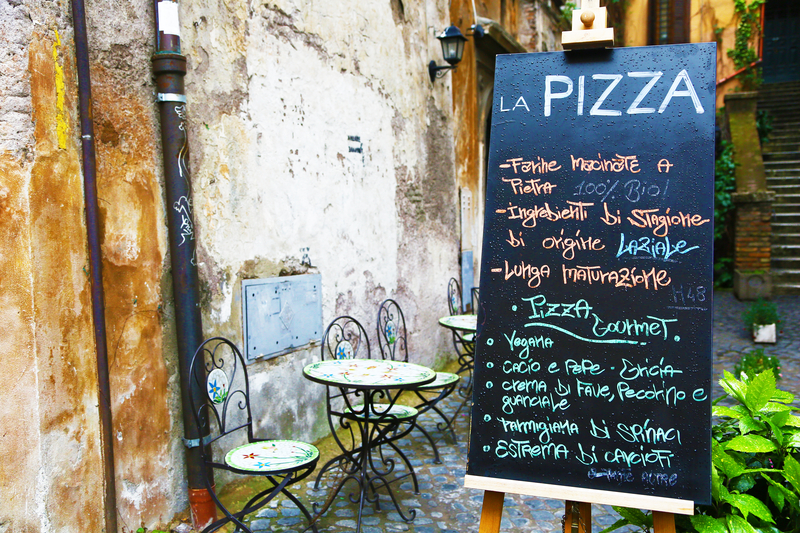 LA PIZZA
-Farine macinate A
Pietra 100% Bio!
-Ingredienti di Stagione
di origine LAZIALE
-LUNGA MATURAZIONE
H48
• Pizza
Gourmet •
• Vegana
• CACIO e PEPE - Gricia
• crema di Fave, Pecorino e
guanciale
• PARMIGIANA di SPINACI
• ESTREMA di CARCIOFI
e altre